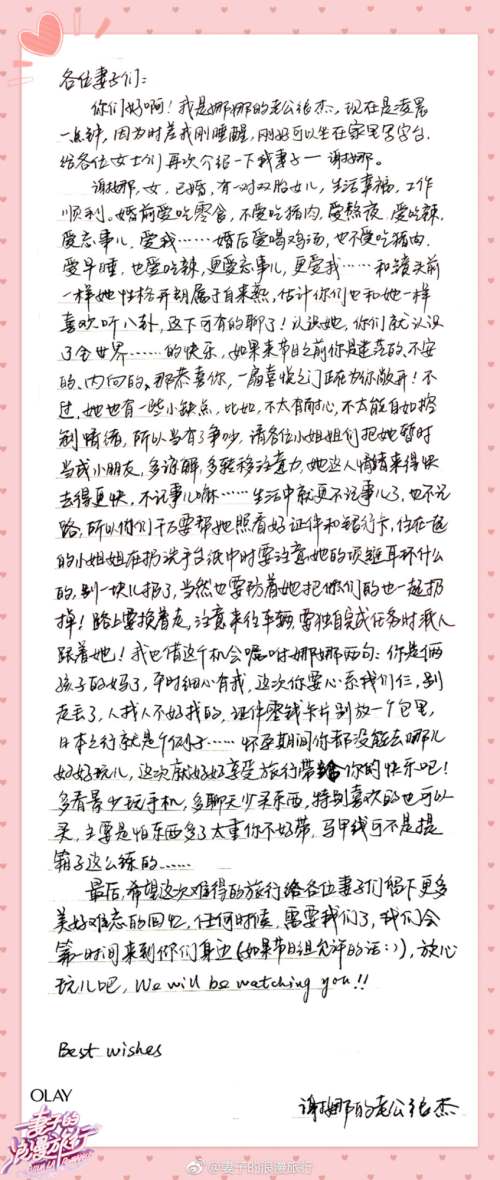 各位妻子们:
你们好啊!我是娜娜的老公张杰,现在是凌晨
一点钟,因为时差我刚睡醒,刚好可以坐在家里写字台
给各位女士们再次介绍一下我妻子——谢娜。
谢娜,女,已婚,有一对双胞女儿,生活幸福,工作
顺利。婚前爱吃零食,不爱吃猪肉,爱熬夜,爱吃辣,
爱忘事儿,爱我……婚后爱喝鸡汤,也不爱吃猪肉,
爱早睡,也爱吃辣,更爱忘事儿,更爱我……和镜头前
一样她性格开朗属于自来熟,估计你们也和她一样
喜欢听八卦,这下可有的聊了!认识她,你们就认识
了全世界……的快乐,如果来节目之前你是迷茫的、不安
的、内向的,那恭喜你,一扇喜悦之门正在为你敞开!不
过,她也有一些小缺点,比如,不太有耐心,不太能自如控
制情绪,所以当有了争吵,请各位小姐姐们把她暂时
当成小朋友,多谅解,多转移注意力,她这人情绪来得快
去得更快,不记事儿嘛……生活中就更不记事儿了,也不记
路,所以你们千万要帮她照看好证件和银行卡,住在一起
的小姐姐在扔洗手台纸巾时要注意她的项链耳环什么
的,别一块儿扔了,当然也要防着她把你们的也一起扔
掉!路上要挨着走,注意来往车辆,要独自完成任务时找人
跟着她!我也借这个机会嘱咐娜娜两句:你是俩
孩子的妈了,平时细心有我,这次你要心系我们仨,别
走丢了,人找人不好找的,证件零钱卡片别放一个包里,
日本之行就是个例子……怀孕期间你都没能去哪儿
好好玩儿,这次就好好享受旅行带给你的快乐吧!
多看景少玩手机,多聊天少买东西,特别喜欢的也可以
买,主要是怕东西多了太重你不好带,马甲线可不是提
箱子这么练的……
最后,希望这次难得的旅行给各位妻子们留下更多
美好难忘的回忆,任何时候,需要我们了,我们会
第一时间来到你们身边(如果节目组允许的话:)),放心
玩儿吧,We will be watching you!!
Best wishes
谢娜的老公张杰
OLAY
妻子的
浪漫旅行
@妻子的浪漫旅行